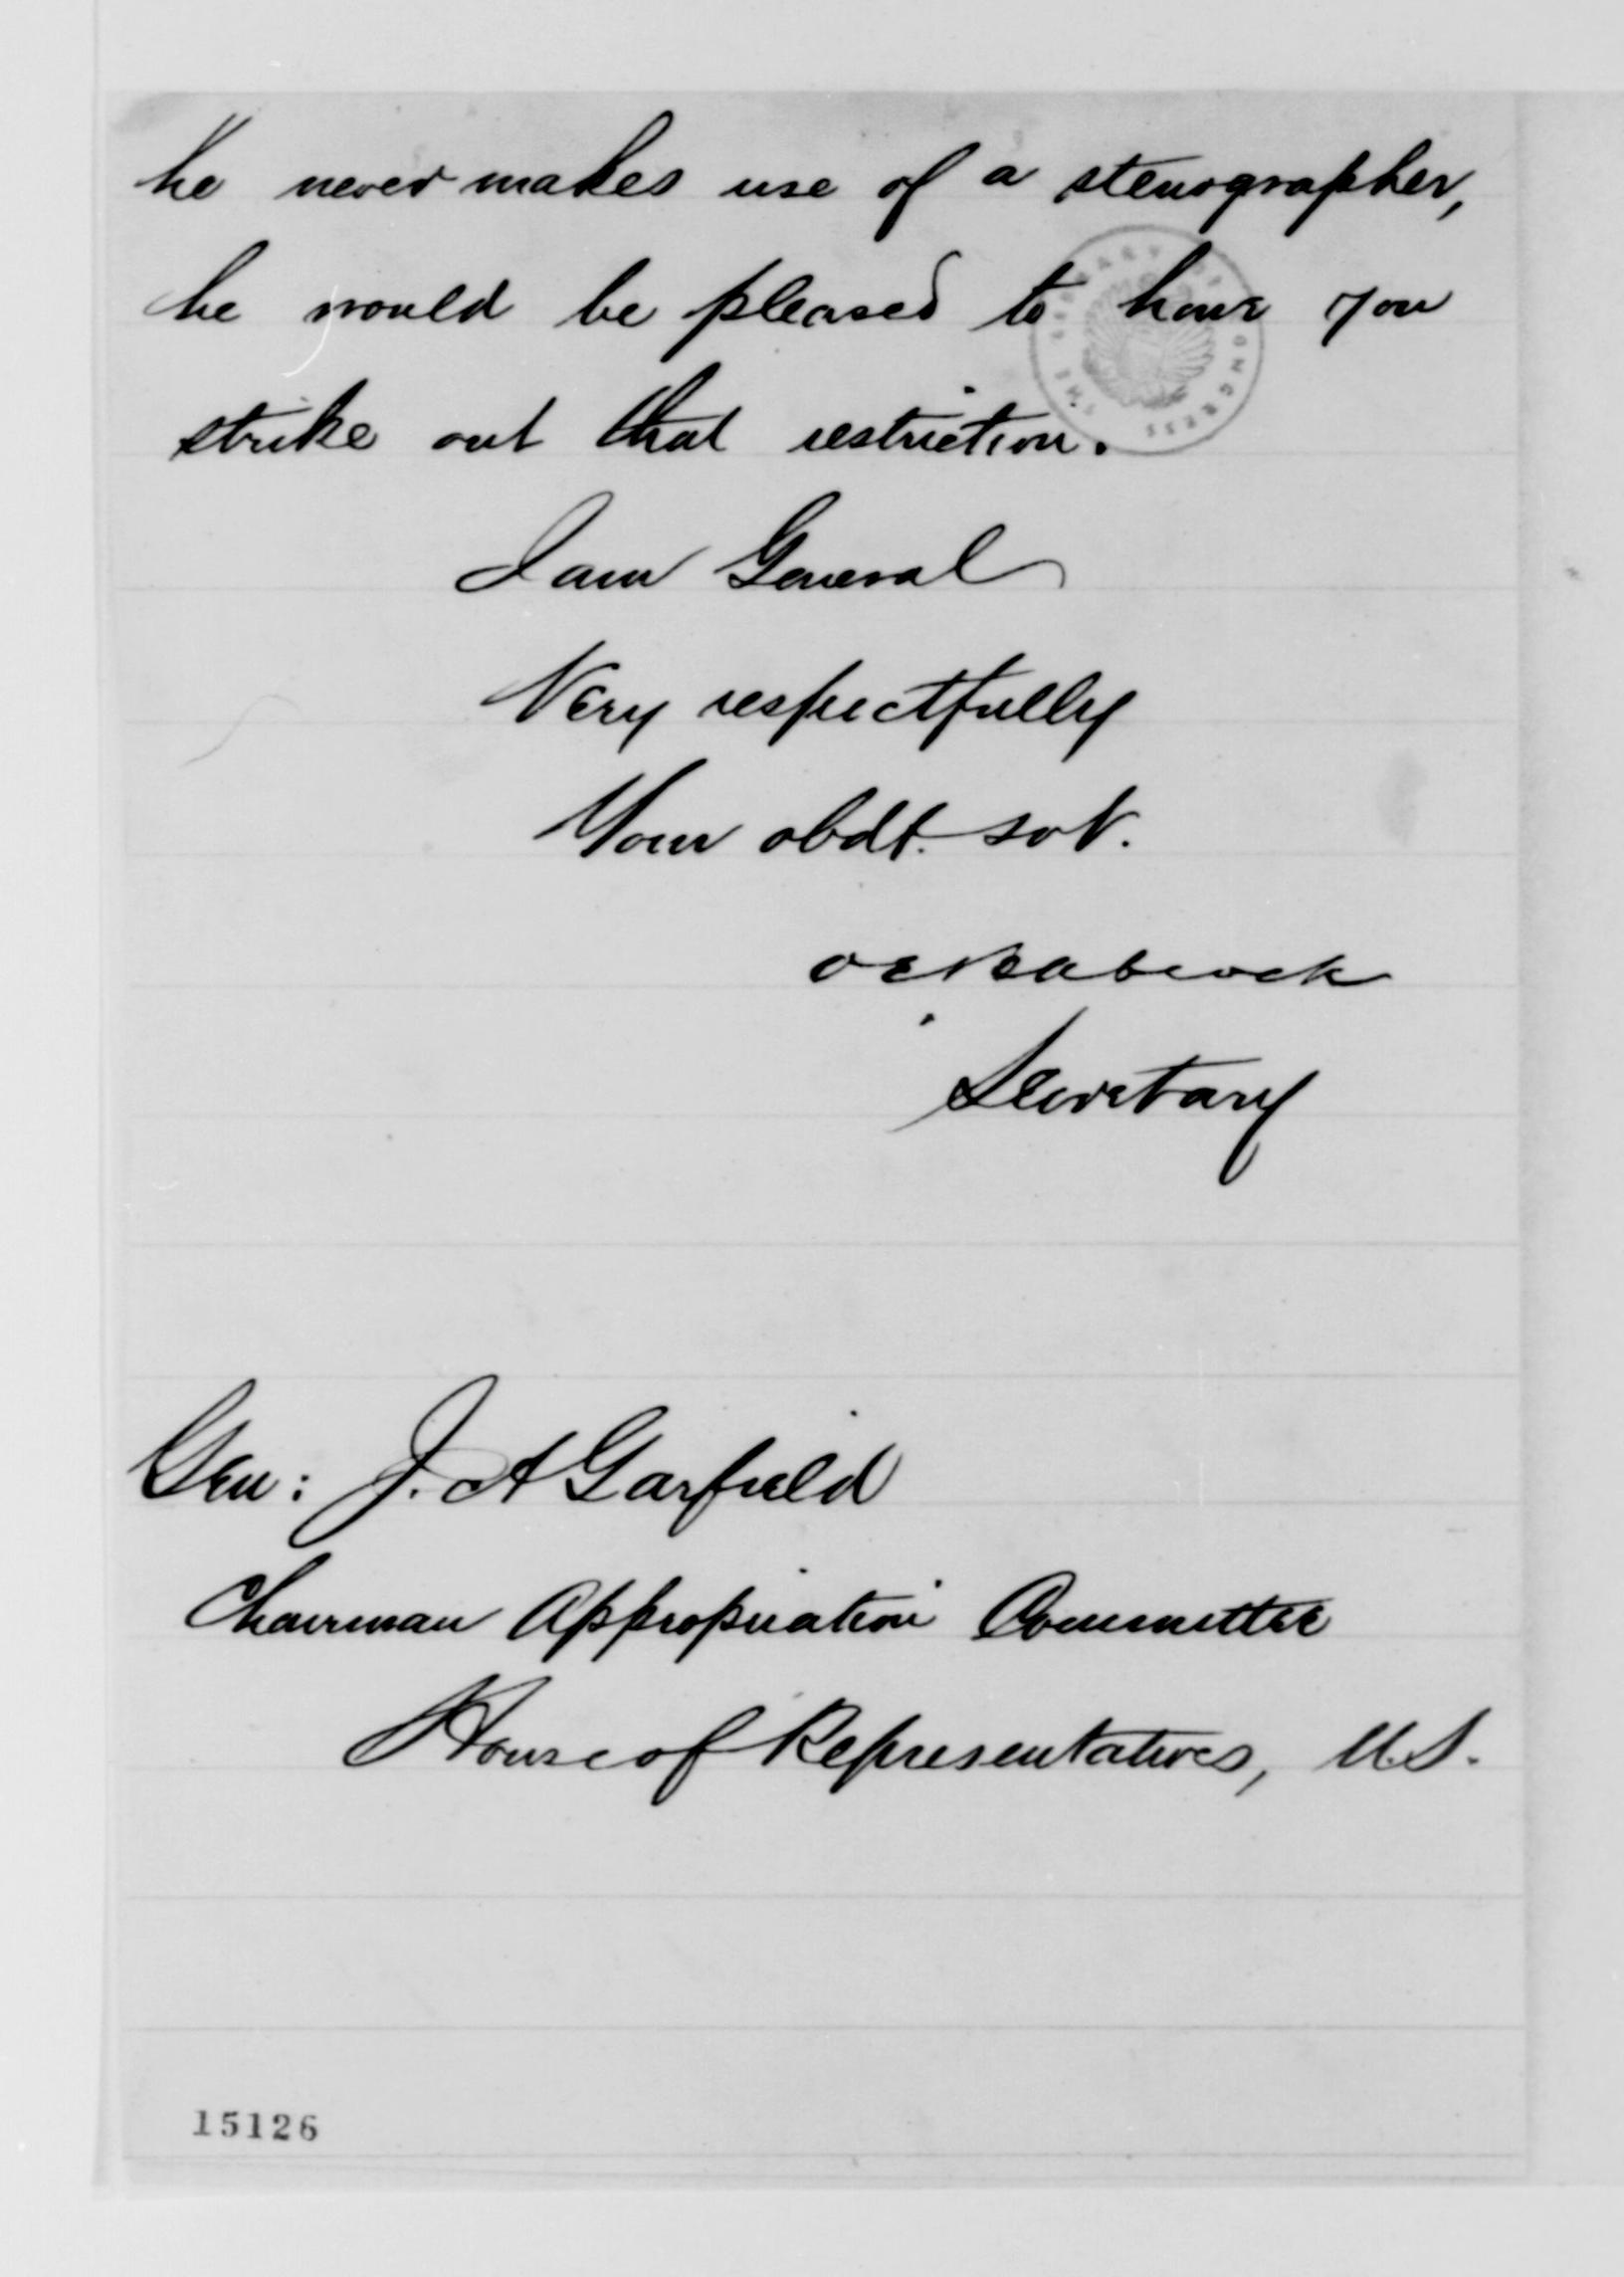 he never makes use of a stenographer,
he would be pleased to have you
strike out that restriction.
I am General
Very respectfully
Your obdt. svt.
O E Babcock
Secretary
Gen: J. A Garfield
Chairman Appropriation Committee
House of Representatives, U.S.
15126
THE LIBRARY OF CONGRESS